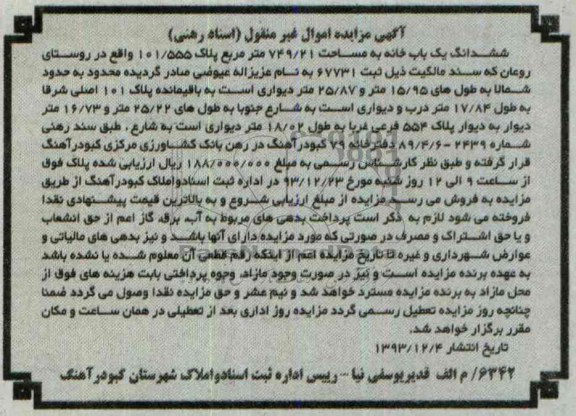 آگهی مزایده اموال غیر منقول (اسناد رهنی)
ششدانگ یک باب خانه به مساحت ۷۴۹/۲۱ متر مربع پلاک ۱۰۱/۵۵۵ واقع در روستای
روعان که سند مالکیت ذیل ثبت ۶۷۷۳۱ به نام عزیزاله عیوضی صادر گردیده محدود به حدود
شمالا به طول های ۱۵/۹۵ متر و ۲۵/۸۷ متر دیواری است به باقیمانده پلاک ۱۰۱ اصلی شرقا
به طول ۱۷/۸۴ متر درب و دیواری است به شارع جنوبا به طول های ۲۵/۲۲ متر و ۱۶/۷۳ متر
دیوار به دیوار پلاک ۵۵۴ فرعی غربا به طول ۱۸/۰۲ متر دیواری است به شارع ، طبق سند رهنی
شماره ۲۴۳۹ -۸۹/۴/۶ دفترخانه ۷۹ کبودرآهنگ در رهن بانک کشاورزی مرکزی کبودرآهنگ
قرار گرفته و طبق نظر کارشناس رسمی به مبلغ ۱۸۸/۰۰۰/۰۰۰ ریال ارزیابی شده پلاک فوق
از ساعت ۹ الی ۱۲ روز شنبه مورخ ۹۳/۱۲/۲۳ در اداره ثبت اسنادواملاک کبودرآهنگ از طریق
مزایده به فروش می رسد مزایده از مبلغ ارزیابی شروع و به بالاترین قیمت پیشنهادی نقدا
فروخته می شود لازم به ذکر است پرداخت بدهی های مربوط به آب، برق، گاز اعم از حق انشعاب
و یا حق اشتراک و مصرف در صورتی که مورد مزایده دارای آنها باشد و نیز بدهی های مالیاتی و
عوارض شهرداری و غیره تا تاریخ مزایده اعم از اینکه رقم قطعی آن معلوم شده یا نشده باشد
به عهده برنده مزایده است و نیز در صورت وجود مازاد، وجوه پرداختی بابت هزینه های فوق از
محل مازاد به برنده مزایده مسترد خواهد شد و نیم عشر و حق مزایده نقدا وصول می گردد ضمنا
چنانچه روز مزایده تعطیل رسمی گردد مزایده روز اداری بعد از تعطیلی در همان ساعت و مکان
مقرر برگزار خواهد شد.
تاریخ انتشار ۱۳۹۳/۱۲/۴
۶۳۴۲/ م الف قدیریوسفی نیا – رییس اداره ثبت اسنادواملاک شهرستان کبودرآهنگ